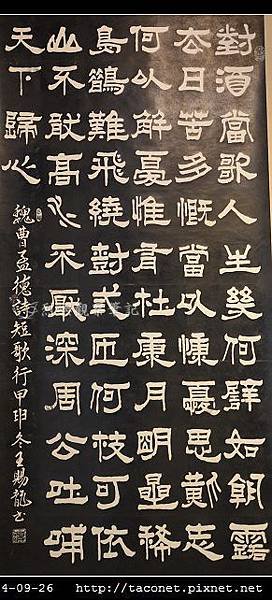 對酒當歌人生幾何譬如朝露
去日苦多慨當以慷憂思難忘
何以解憂惟有杜康月明星稀
烏鵲難飛繞樹弎匝何枝可依
山不厭高水不厭深周公吐哺
天下歸心
魏曹孟德詩短歌行甲申冬王賜龍書
4-09-26 http://taconet.pixnet.net